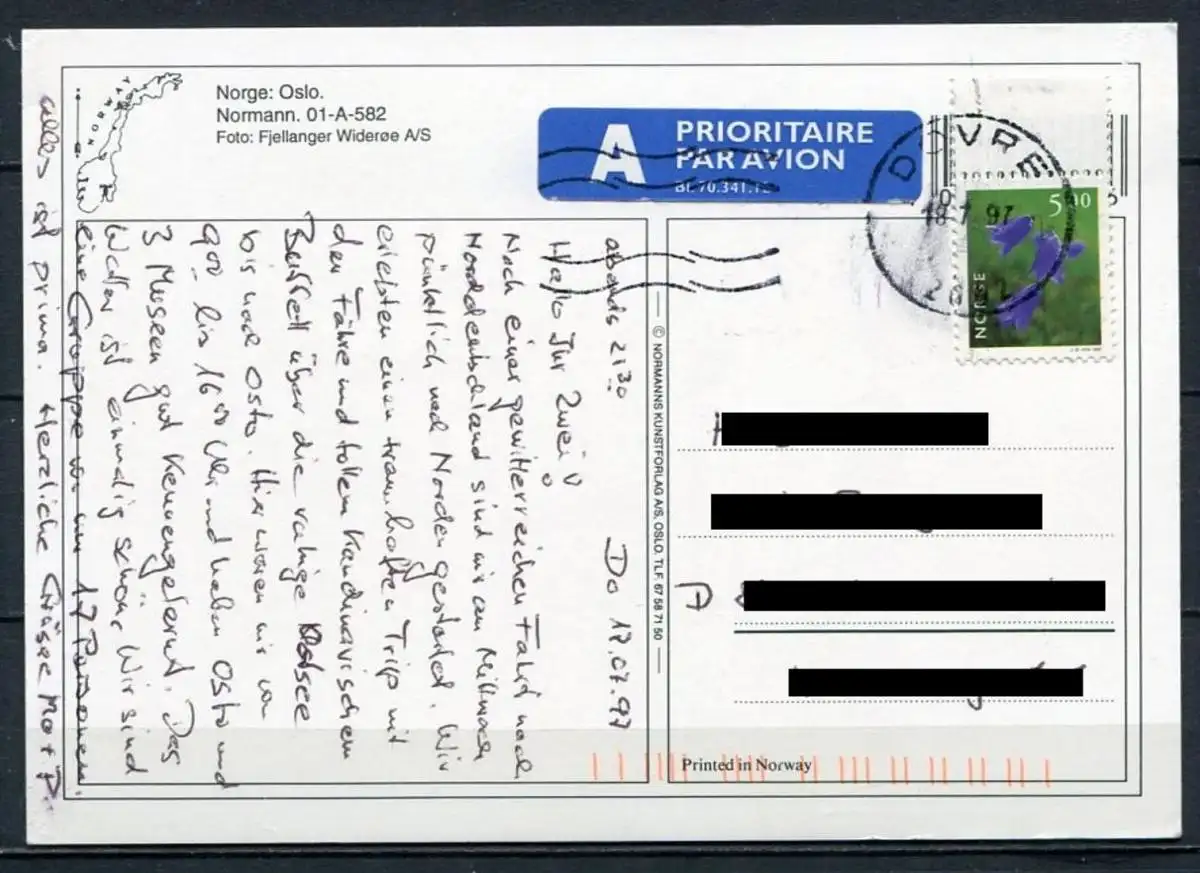 NORWAY
Norge: Oslo.
Normann. 01-A-582
Foto: Fjellanger Widerøe A/S
A PRIORITAIRE
PAR AVION
BL.70.341.1
DOVRE
18.7.97
5.00
NORGE
abends 21³⁰ Do 17.07.97
Hallo Ihr Zwei!
Nach einer gewitterreichen Fahrt nach
Norddeutschland sind wir am Mittwoch
pünktlich nach Norden gestartet. Wir
erlebten einen traumhaften Trip mit
der Fähre und tollem skandinavischem
Buffett über die ruhige Ostsee
bis nach Oslo. Hier waren wir von
9⁰⁰ bis 16⁰⁰ Uhr und haben Oslo und
3 Museen gut kennengelernt. Das
Wetter ist einmalig schön, Wir sind
eine Gruppe von nur 17 Personen.
alles ist prima. Herzliche Grüsse M. + P.
© NORMANNS KUNSTFORLAG A/S, OSLO. TLF. 67 58 71 50
A
Printed in Norway